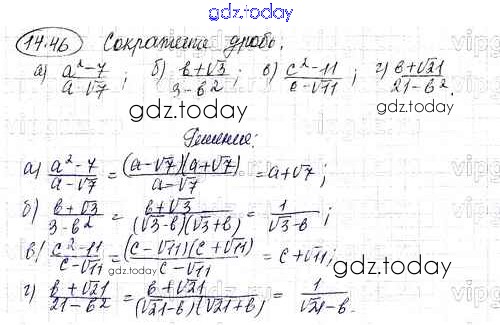 gdz.today
14.46 Сократите дробь:
а) (a²-7)/(a-√7); б) (b+√3)/(3-b²); в) (c²-11)/(c-√11); г) (b+√21)/(21-b²).
gdz.today gdz.today
Решение:
а) (a²-7)/(a-√7) = ((a-√7)(a+√7))/(a-√7) = a+√7;
б) (b+√3)/(3-b²) = (b+√3)/((√3-b)(√3+b)) = 1/(√3-b);
в) (c²-11)/(c-√11) = ((c-√11)(c+√11))/(c-√11) = c+√11;
gdz.today gdz.today
г) (b+√21)/(21-b²) = (b+√21)/((√21-b)(√21+b)) = 1/(√21-b).